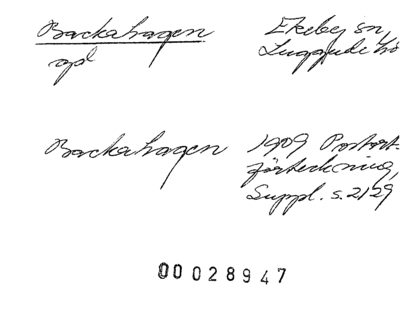 Backahagen Ekeby sn,
vpl Luggude hd
Backahagen 1909 Postort-
förteckning,
Suppl. s. 2129
00028947